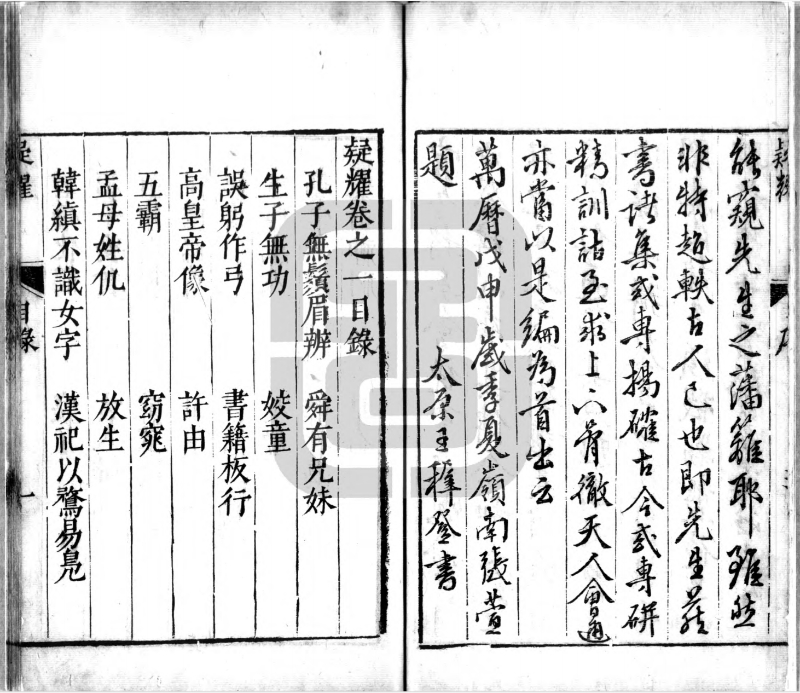 能窺先生之藩籬耶雖然
非特超軼古人已也即先生著
書諸集或專揚確古今或專研
精訓詁至求上下貫徹天人會通
亦當以是編為首出云
萬曆戊申歲季夏嶺南張萱
題
太原王穉登書
疑耀卷之一目錄
孔子無鬚眉辨 舜有兄妹
生子無功 姣童
誤躬作弓 書籍板行
高皇帝像 許由
五霸 窈窕
孟母姓仉 放生
韓縝不識女字 漢祀以鶩易鳧
疑耀 目錄 一